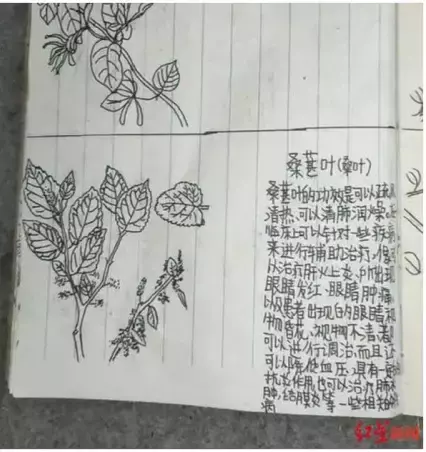 桑葚叶(桑叶)
桑葚叶的功效是可以疏风
清热,可以清肺润燥,在
临床上可以针对一些疾病
来进行辅助治疗,像可
以治疗肝火上炎,户所出现
眼睛发红、眼睛肿痛,
以及患者出现的眼睛视
物昏花、视物不清,都
可以进行调治,而且还
可以降低血压,具有一定
抗炎作用,也可以治疗肺水
肿,结膜炎等一些相关的
病
红星